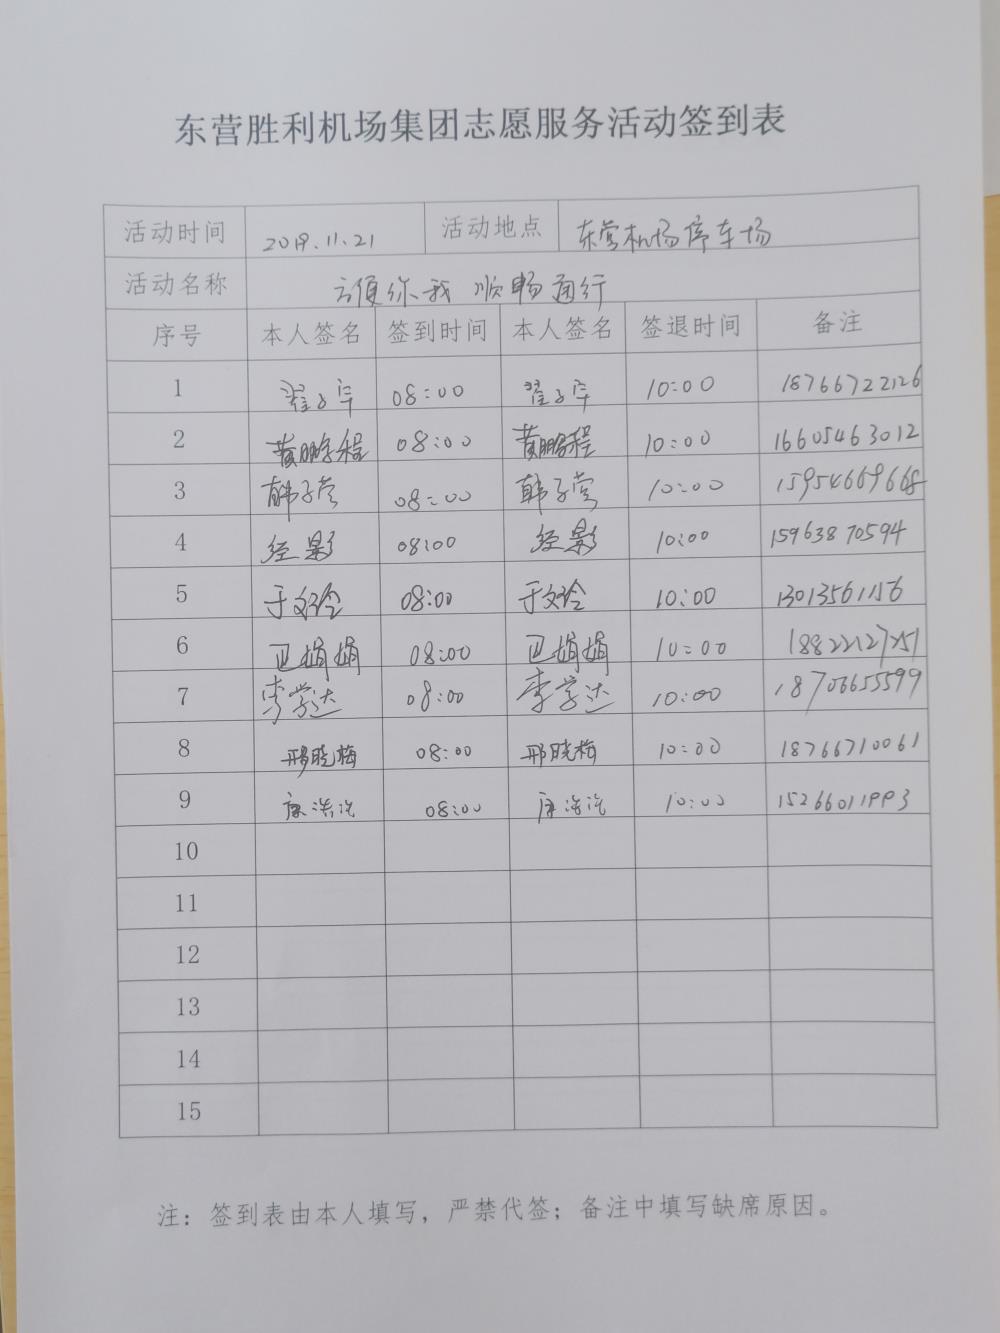 东营胜利机场集团志愿服务活动签到表
活动时间 2019.11.21 活动地点 东营机场停车场
活动名称 方便你我 顺畅通行
序号 本人签名 签到时间 本人签名 签退时间 备注
1 翟子宇 08:00 翟子宇 10:00 18766722126
2 黄鹏程 08:00 黄鹏程 10:00 16605463012
3 韩子莹 08:00 韩子莹 10:00 15954669668
4 经影 08:00 经影 10:00 15963870594
5 于文玲 08:00 于文玲 10:00 13013561156
6 卫娟娟 08:00 卫娟娟 10:00 18822127251
7 李学达 08:00 李学达 10:00 18706655599
8 邢晓梅 08:00 邢晓梅 10:00 18766710061
9 08:00 10:00 15266011993
10
11
12
13
14
15
注：签到表由本人填写，严禁代签；备注中填写缺席原因。